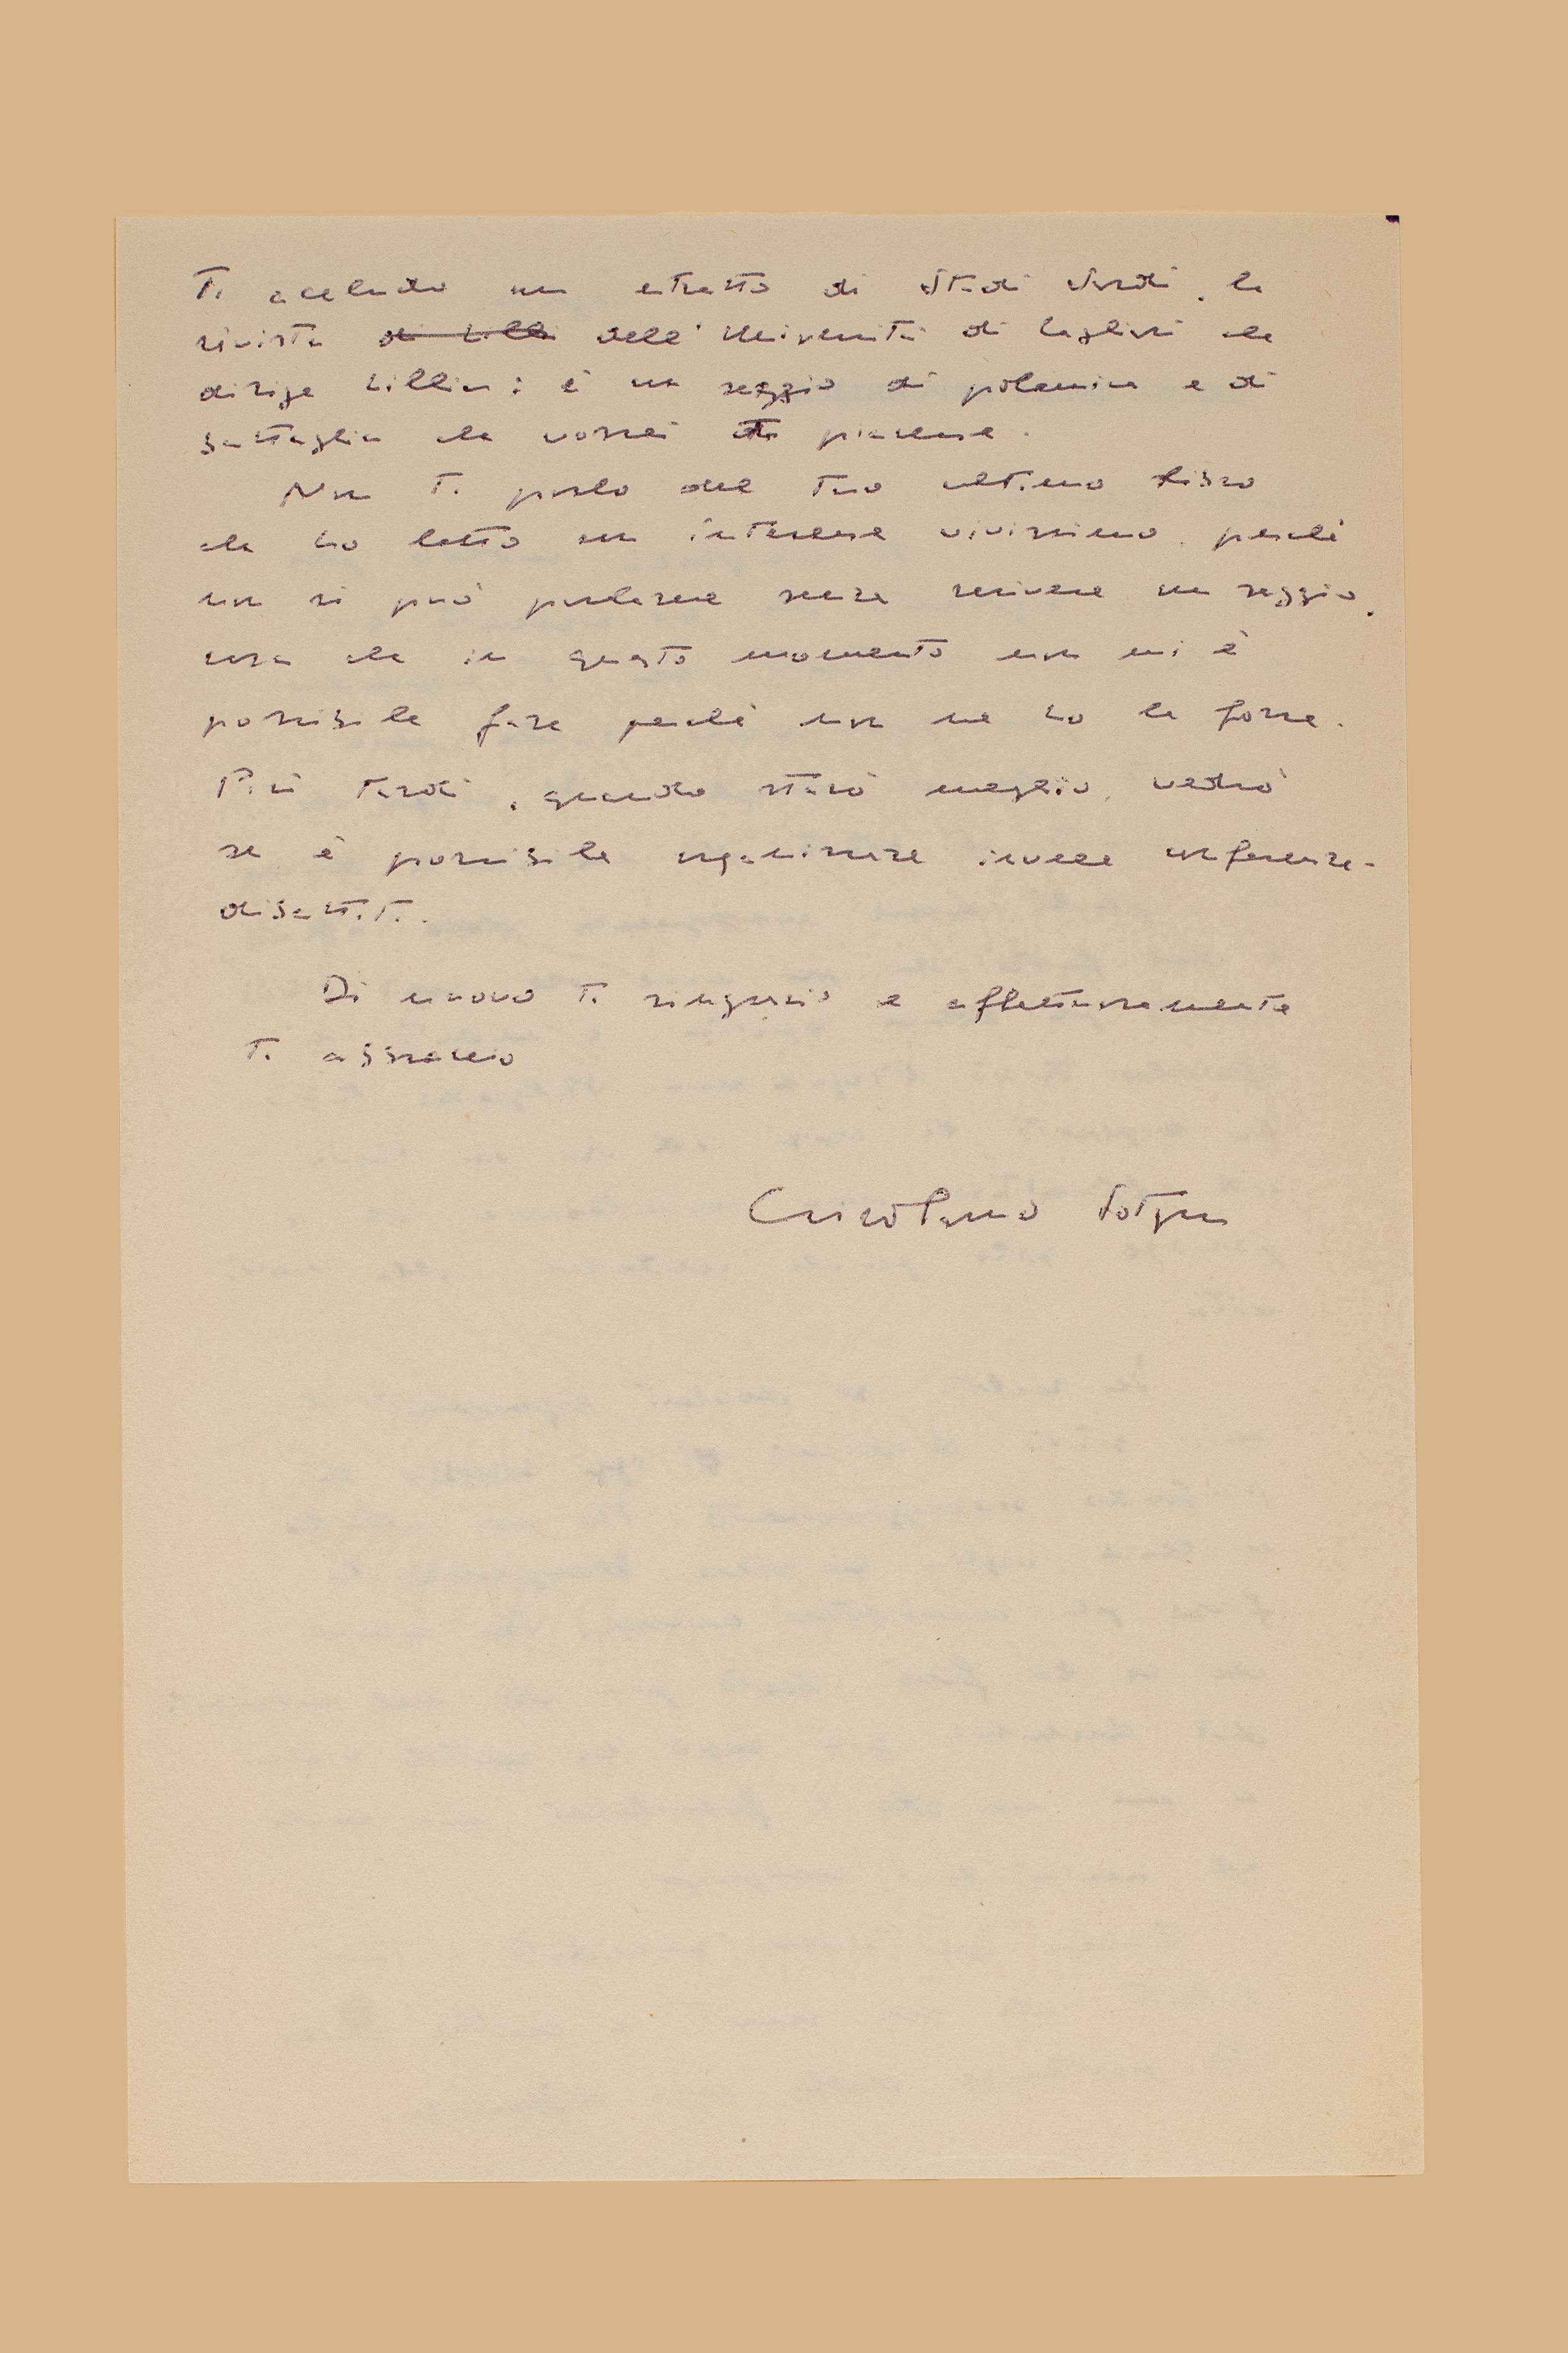 Ti accludo un estratto di Studi Sardi, la
rivista di Lilli dell'Università di Cagliari che
dirige Lilliu: è un saggio di polemica e di
battaglia che vorrei ti piacesse.
Non Ti parlo del Tuo ultimo libro
che ho letto con interesse vivissimo, perché
non si può parlarne senza scrivere un saggio,
cosa che in questo momento non mi è
possibile fare perché non ne ho le forze.
Più tardi, quando starò meglio, vedrò
se è possibile organizzare invece conferenze-
dibattiti.
Di nuovo Ti ringrazio e affettuosamente
Ti abbraccio